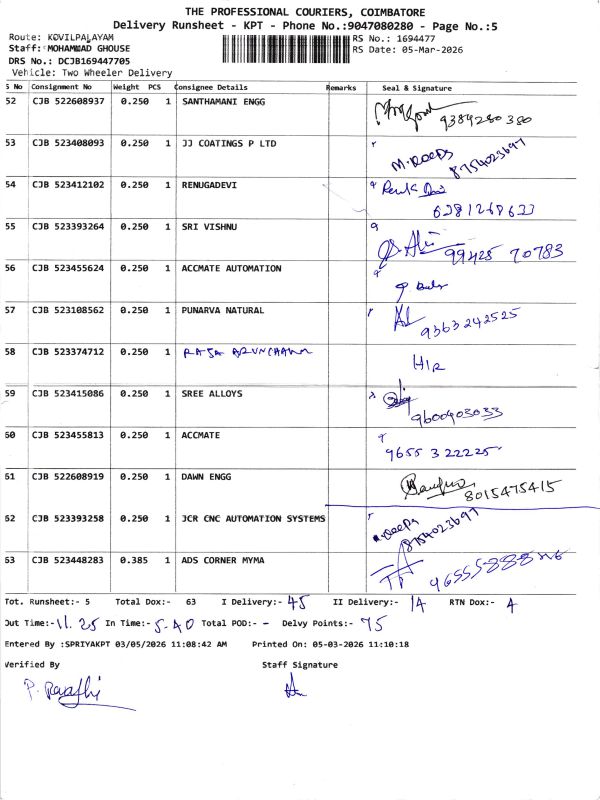 THE PROFESSIONAL COURIERS, COIMBATORE
Delivery Runsheet - KPT - Phone No.:9047080280 - Page No.:5
Route: KOVILPALAYAM RS No.: 1694477
Staff: MOHAMMAD GHOUSE RS Date: 05-Mar-2026
DRS No.: DCJB169447705
Vehicle: Two Wheeler Delivery
S No Consignment No Weight PCS Consignee Details Remarks Seal & Signature
52 CJB 522608937 0.250 1 SANTHAMANI ENGG 9384280380
53 CJB 523408093 0.250 1 JJ COATINGS P LTD 8754023697
54 CJB 523412102 0.250 1 RENUGADEVI
6281268633
55 CJB 523393264 0.250 1 SRI VISHNU 99425 70783
56 CJB 523455624 0.250 1 ACCMATE AUTOMATION
57 CJB 523108562 0.250 1 PUNARVA NATURAL 9363242525
58 CJB 523374712 0.250 1 HIR
59 CJB 523415086 0.250 1 SREE ALLOYS 9600903033
60 CJB 523455813 0.250 1 ACCMATE 9655 322225
61 CJB 522608919 0.250 1 DAWN ENGG 8015475415
62 CJB 523393258 0.250 1 JCR CNC AUTOMATION SYSTEMS 8754023697
63 CJB 523448283 0.385 1 ADS CORNER MYMA
Tot. Runsheet:- 5 Total Dox:- 63 I Delivery:- 45 II Delivery:- 14 RTN Dox:- 4
Out Time:- 11.25 In Time:- 5.40 Total POD:- - Delvy Points:- 75
Entered By :SPRIYAKPT 03/05/2026 11:08:42 AM Printed On: 05-03-2026 11:10:18
Verified By Staff Signature